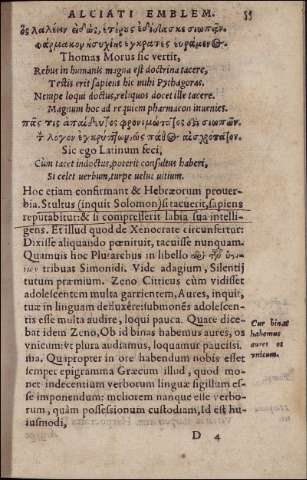 ALCIATI EMBLEM. 55
ὃς λαλέειν εἰδὼς, ἑτέρους ἐδίδασκε σιωπᾶν,
φάρμακον ἡσυχίης ἐγκρατὲς εὑράμενος.
Thomas Morus sic vertit,
Rebus in humanis magna est doctrina tacere,
Testis erit sapiens hic mihi Pythagoras,
Nempe loqui doctus, reliquos docet ille tacere.
Magnum hoc ad requiem pharmacon inuenies.
πᾶς τις ἀπαίδευτος φρονιμώτατός ἐστι σιωπῶν,
τ λόγον ἐγκρύπτων, ὡς πάθος αἰσχρότατον.
Sic ego Latinum feci,
Cùm tacet indoctus, poterit consultus haberi,
Si celet uerbum, turpe uelut uitium.
Hoc etiam confirmant & Hebræorum prouer-
bia. Stultus (inquit Solomon) si tacuerit, sapiens
reputabitur: & si compresserit labia sua intelli-
gens. Et illud quod de Xenocrate circunfertur:
Dixisse aliquando pœnituit, tacuisse nunquam.
Quamuis hoc Plutarchus in libello
tribuat Simonidi. Vide adagium, Silentij
tutum præmium. Zeno Citticus cùm vidisset
adolescentem multa garrientem, Aures, inquit,
tuæ in linguam defluxére: submonẽs adolescen-
tis esse multa audire, loqui pauca. Quare dice-
bat idem Zeno, Ob id binas habemus aures, os
vnicum: vt plura audiamus, loquamur paucissi-
ma. Quipropter in ore habendum nobis esset
semper epigramma Græcum illud, quod mo-
net indecentium verborum linguæ sigillum es-
se imponendum: meliorem nanque esse verbo-
rum, quàm possessionum custodiam, Id est hu-
iusmodi,
D 4
Cur binas
habemus
aures os
vnicum.